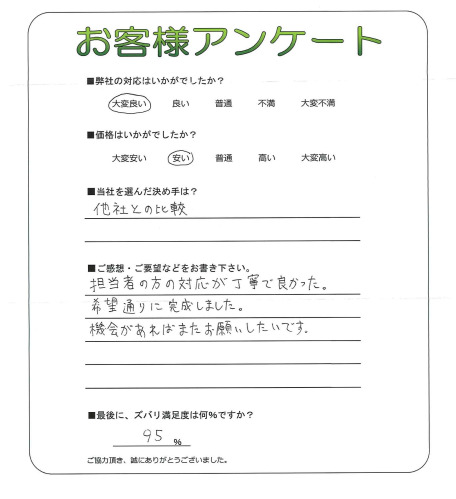 お客様アンケート
■弊社の対応はいかがでしたか？
大変良い 良い 普通 不満 大変不満
■価格はいかがでしたか？
大変安い 安い 普通 高い 大変高い
■当社を選んだ決め手は？
他社との比較
■ご感想・ご要望などをお書き下さい。
担当者の方の対応が丁寧で良かった。
希望通りに完成しました。
機会があればまたお願いしたいです。
■最後に、ズバリ満足度は何％ですか？
95 ％
ご協力頂き、誠にありがとうございました。